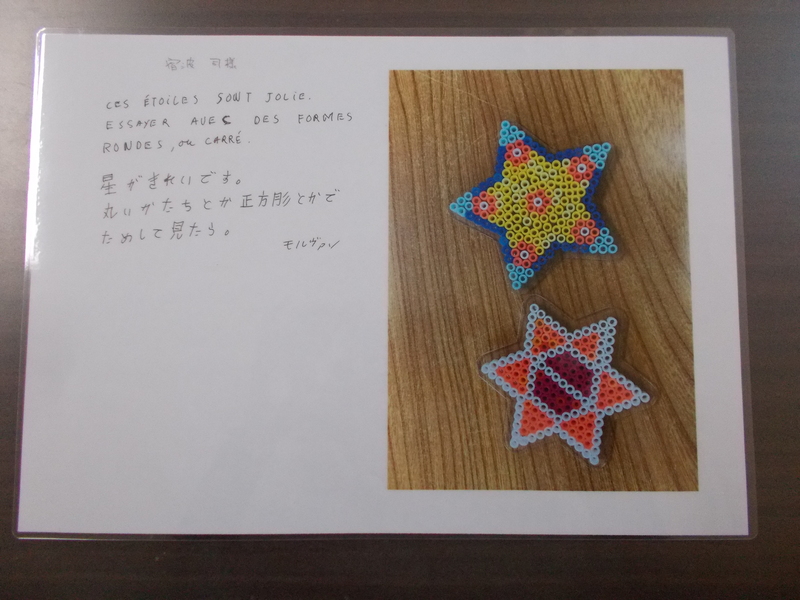 宮波 可様
CES ÉTOILES SONT JOLIE.
ESSAYER AVEC DES FORMES
RONDES, ou CARRÉ.
星がきれいです。
丸いがたちとか正方形とかで
ためして見たら。
モルヴァン